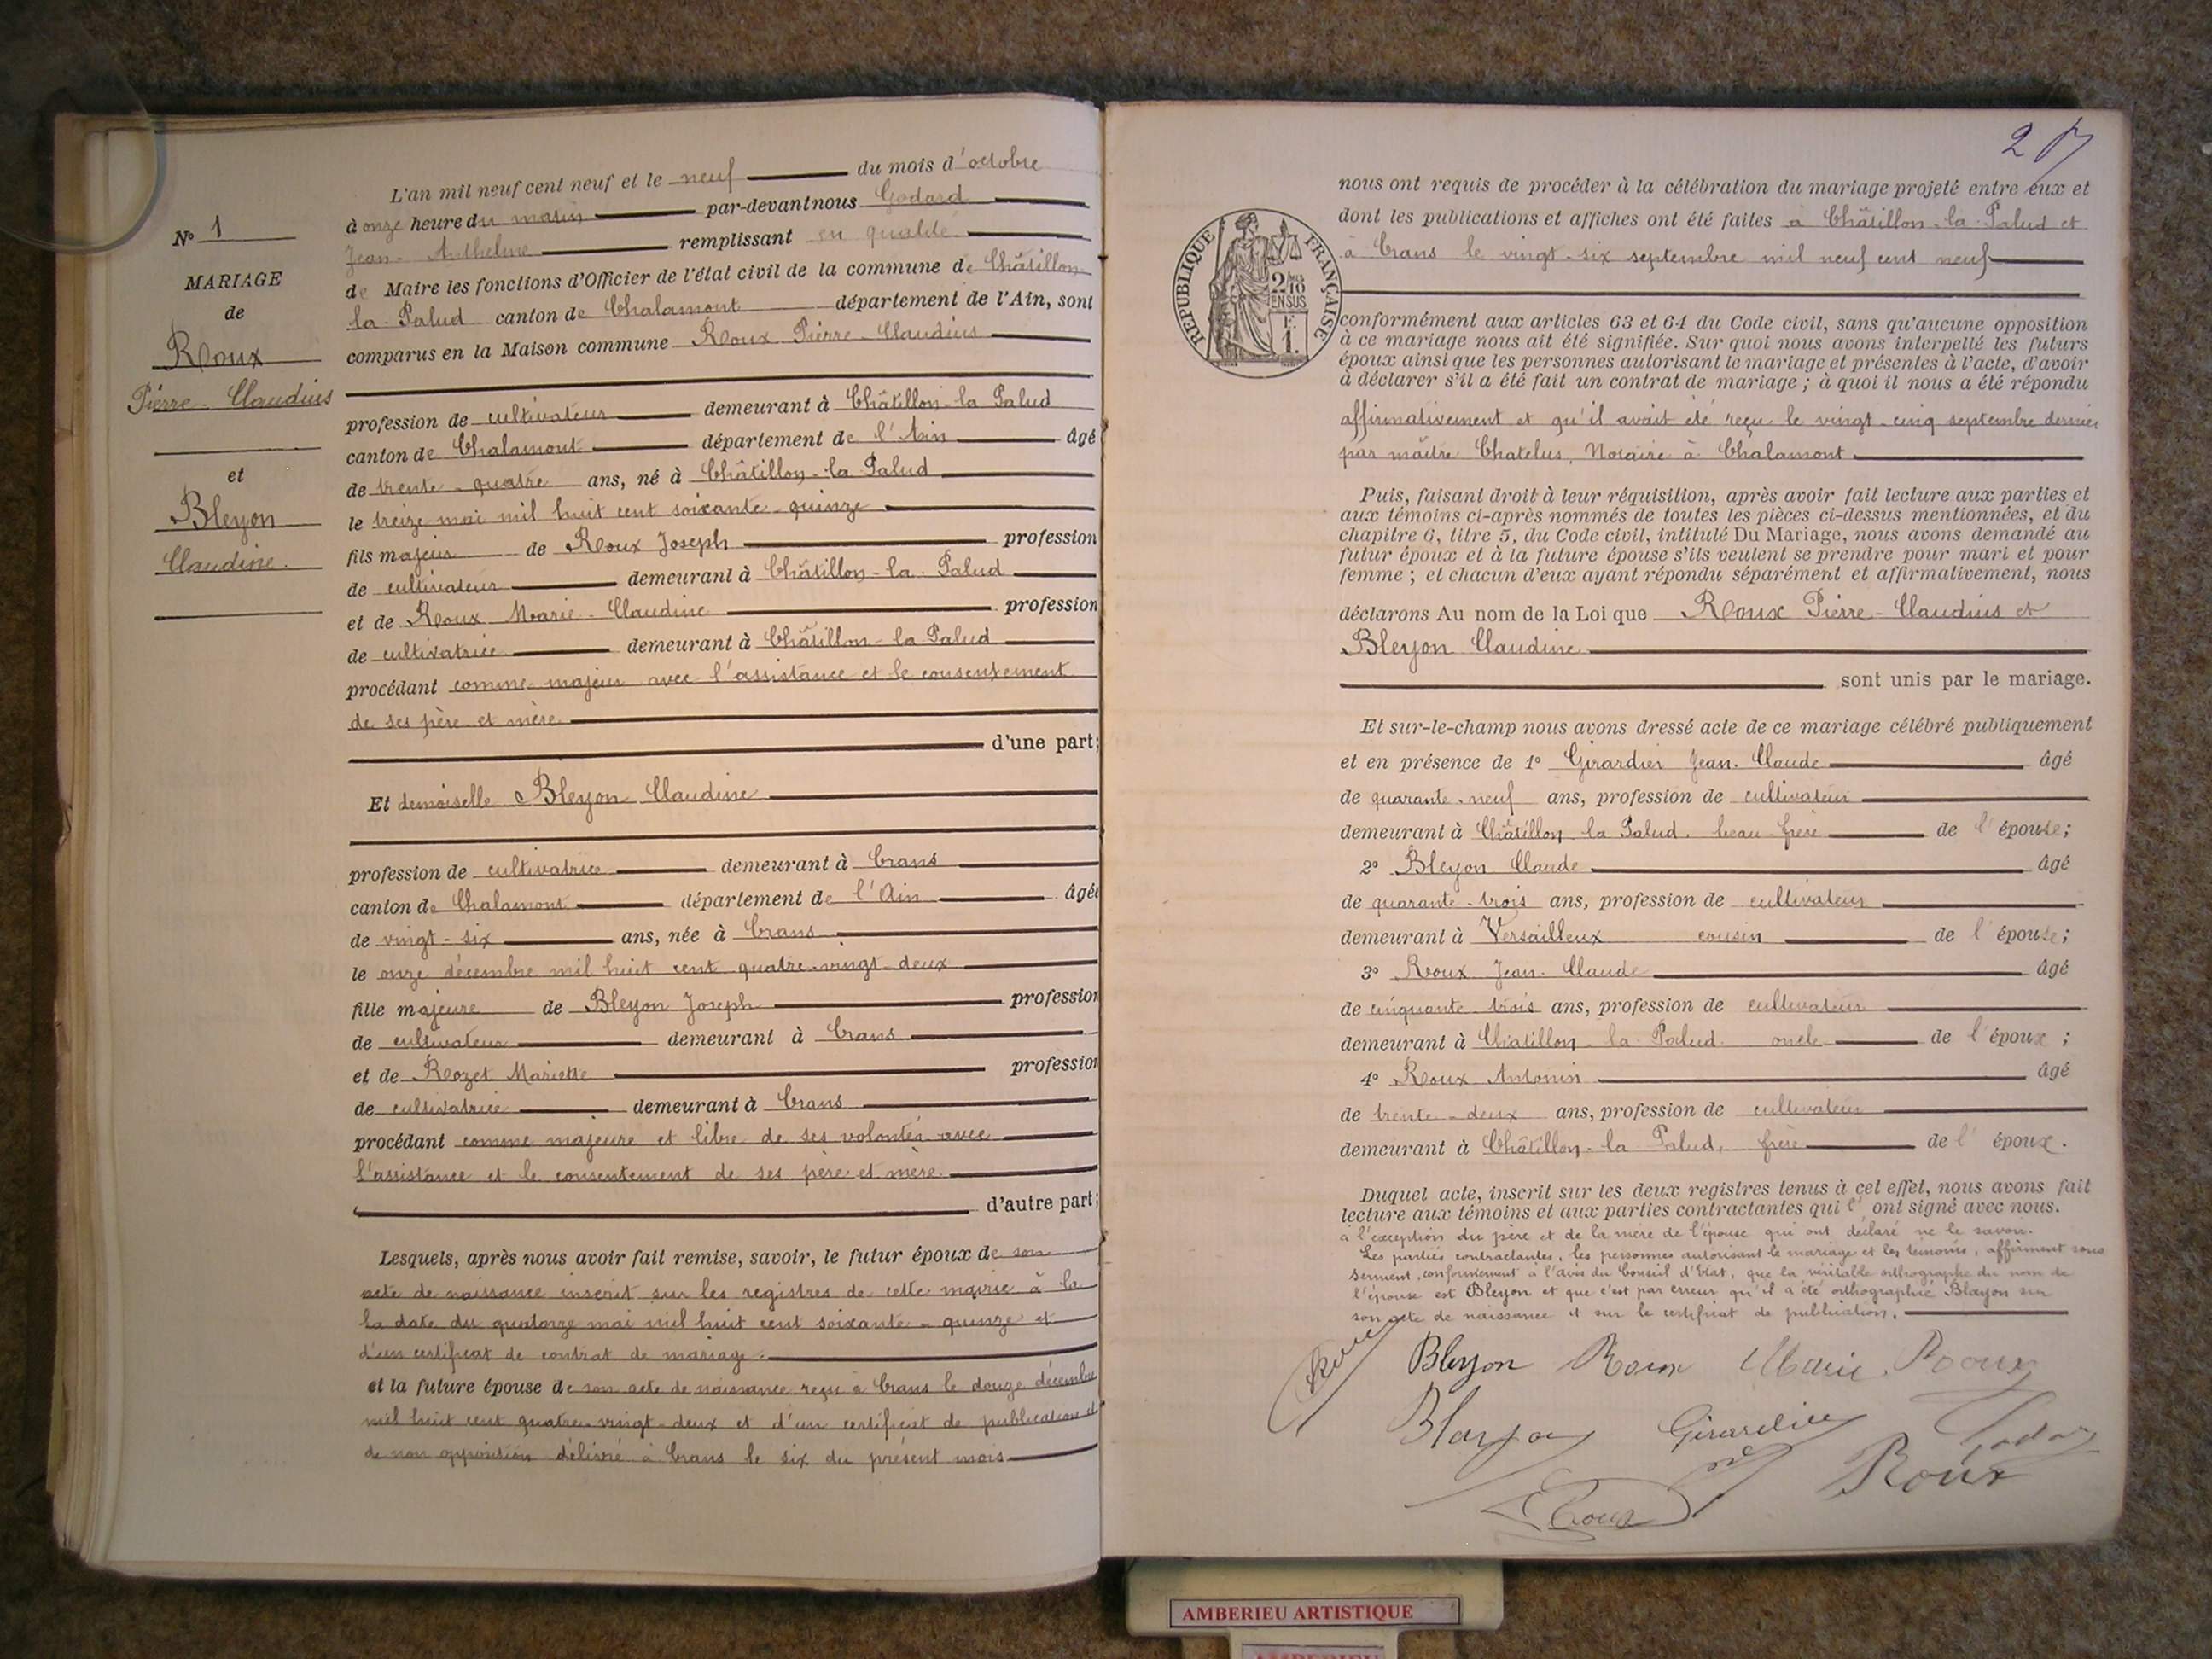 L'an mil neuf cent neuf et le neuf du mois d'octobre
à onze heure du matin par-devant nous Godard
Jean-Anthelme remplissant en qualité
de Maire les fonctions d'Officier de l'état civil de la commune de Châtillon
la Palud canton de Chalamont département de l'Ain, sont
comparus en la Maison commune Roux Pierre-Claudius
profession de cultivateur demeurant à Châtillon-la Palud
canton de Chalamont département de l'Ain âgé
de trente-quatre ans, né à Châtillon-la Palud
le treize mai mil huit cent soixante-quinze
fils majeur de Roux Joseph profession
de cultivateur demeurant à Châtillon-la-Palud
et de Roux Marie-Claudine profession
de cultivatrice demeurant à Châtillon-la Palud
procédant comme majeur avec l'assistance et le consentement
de ses père et mère
d'une part;
Et demoiselle Bleyon Claudine
profession de cultivatrice demeurant à Crans
canton de Chalamont département de l'Ain âgée
de vingt-six ans, née à Crans
le onze décembre mil huit cent quatre-vingt-deux
fille majeure de Bleyon Joseph profession
de cultivateur demeurant à Crans
et de Rozet Mariette profession
de cultivatrice demeurant à Crans
procédant comme majeure et libre de ses volontés avec
l'assistance et le consentement de ses père et mère
d'autre part;
Lesquels, après nous avoir fait remise, savoir, le futur époux de son
acte de naissance inscrit sur les registres de cette mairie à la
la date du quatorze mai mil huit cent soixante-quinze et
d'un certificat de contrat de mariage.
et la future épouse de son acte de naissance reçu à Crans le douze décembre
mil huit cent quatre-vingt-deux et d'un certificat de publication et
de non opposition délivré à Crans le six du présent mois
N° 1
MARIAGE
de
Roux
Pierre-Claudius
et
Bleyon
Claudine.
2
nous ont requis de procéder à la célébration du mariage projeté entre eux et
dont les publications et affiches ont été faites à Châtillon-la-Palud et
à Crans le vingt-six septembre mil neuf cent neuf
RÉPUBLIQUE FRANÇAISE
2/10
EN SUS
F.
1.
conformément aux articles 63 et 64 du Code civil, sans qu'aucune opposition
à ce mariage nous ait été signifiée. Sur quoi nous avons interpellé les futurs
époux ainsi que les personnes autorisant le mariage et présentes à l'acte, d'avoir
à déclarer s'il a été fait un contrat de mariage ; à quoi il nous a été répondu
affirmativement et qu'il avait été reçu le vingt-cinq septembre dernier
par maître Chatelus, Notaire à Chalamont.
Puis, faisant droit à leur réquisition, après avoir fait lecture aux parties et
aux témoins ci-après nommés de toutes les pièces ci-dessus mentionnées, et du
chapitre 6, titre 5, du Code civil, intitulé Du Mariage, nous avons demandé au
futur époux et à la future épouse s'ils veulent se prendre pour mari et pour
femme ; et chacun d'eux ayant répondu séparément et affirmativement, nous
déclarons Au nom de la Loi que Roux Pierre-Claudius et
Bleyon Claudine
sont unis par le mariage.
Et sur-le-champ nous avons dressé acte de ce mariage célébré publiquement
et en présence de 1° Girardier Jean-Claude âgé
de quarante-neuf ans, profession de cultivateur
demeurant à Châtillon la Palud, beau-frère de l'épouse;
2° Bleyon Claude âgé
de quarante-trois ans, profession de cultivateur
demeurant à Versailleux cousin de l'épouse;
3° Roux Jean-Claude âgé
de cinquante trois ans, profession de cultivateur
demeurant à Châtillon-la-Palud oncle de l'époux ;
4° Roux Antonin âgé
de trente-deux ans, profession de cultivateur
demeurant à Châtillon-la Palud, frère de l'époux.
Duquel acte, inscrit sur les deux registres tenus à cet effet, nous avons fait
lecture aux témoins et aux parties contractantes qui l'ont signé avec nous.
à l'exception du père et de la mère de l'épouse qui ont déclaré ne le savoir.
Les parties contractantes, les personnes autorisant le mariage et les témoins, affirment sous
serment, conformément à l'avis du Conseil d'Etat, que la véritable orthographe du nom de
l'épouse est Bleyon et que c'est par erreur qu'il a été orthographié Blayon sur
son acte de naissance et sur le certificat de publication.
Roux Bleyon Roux Marie Roux
Blayon Girardier Godard
Roux Roux
AMBERIEU ARTISTIQUE
AMBERIEU